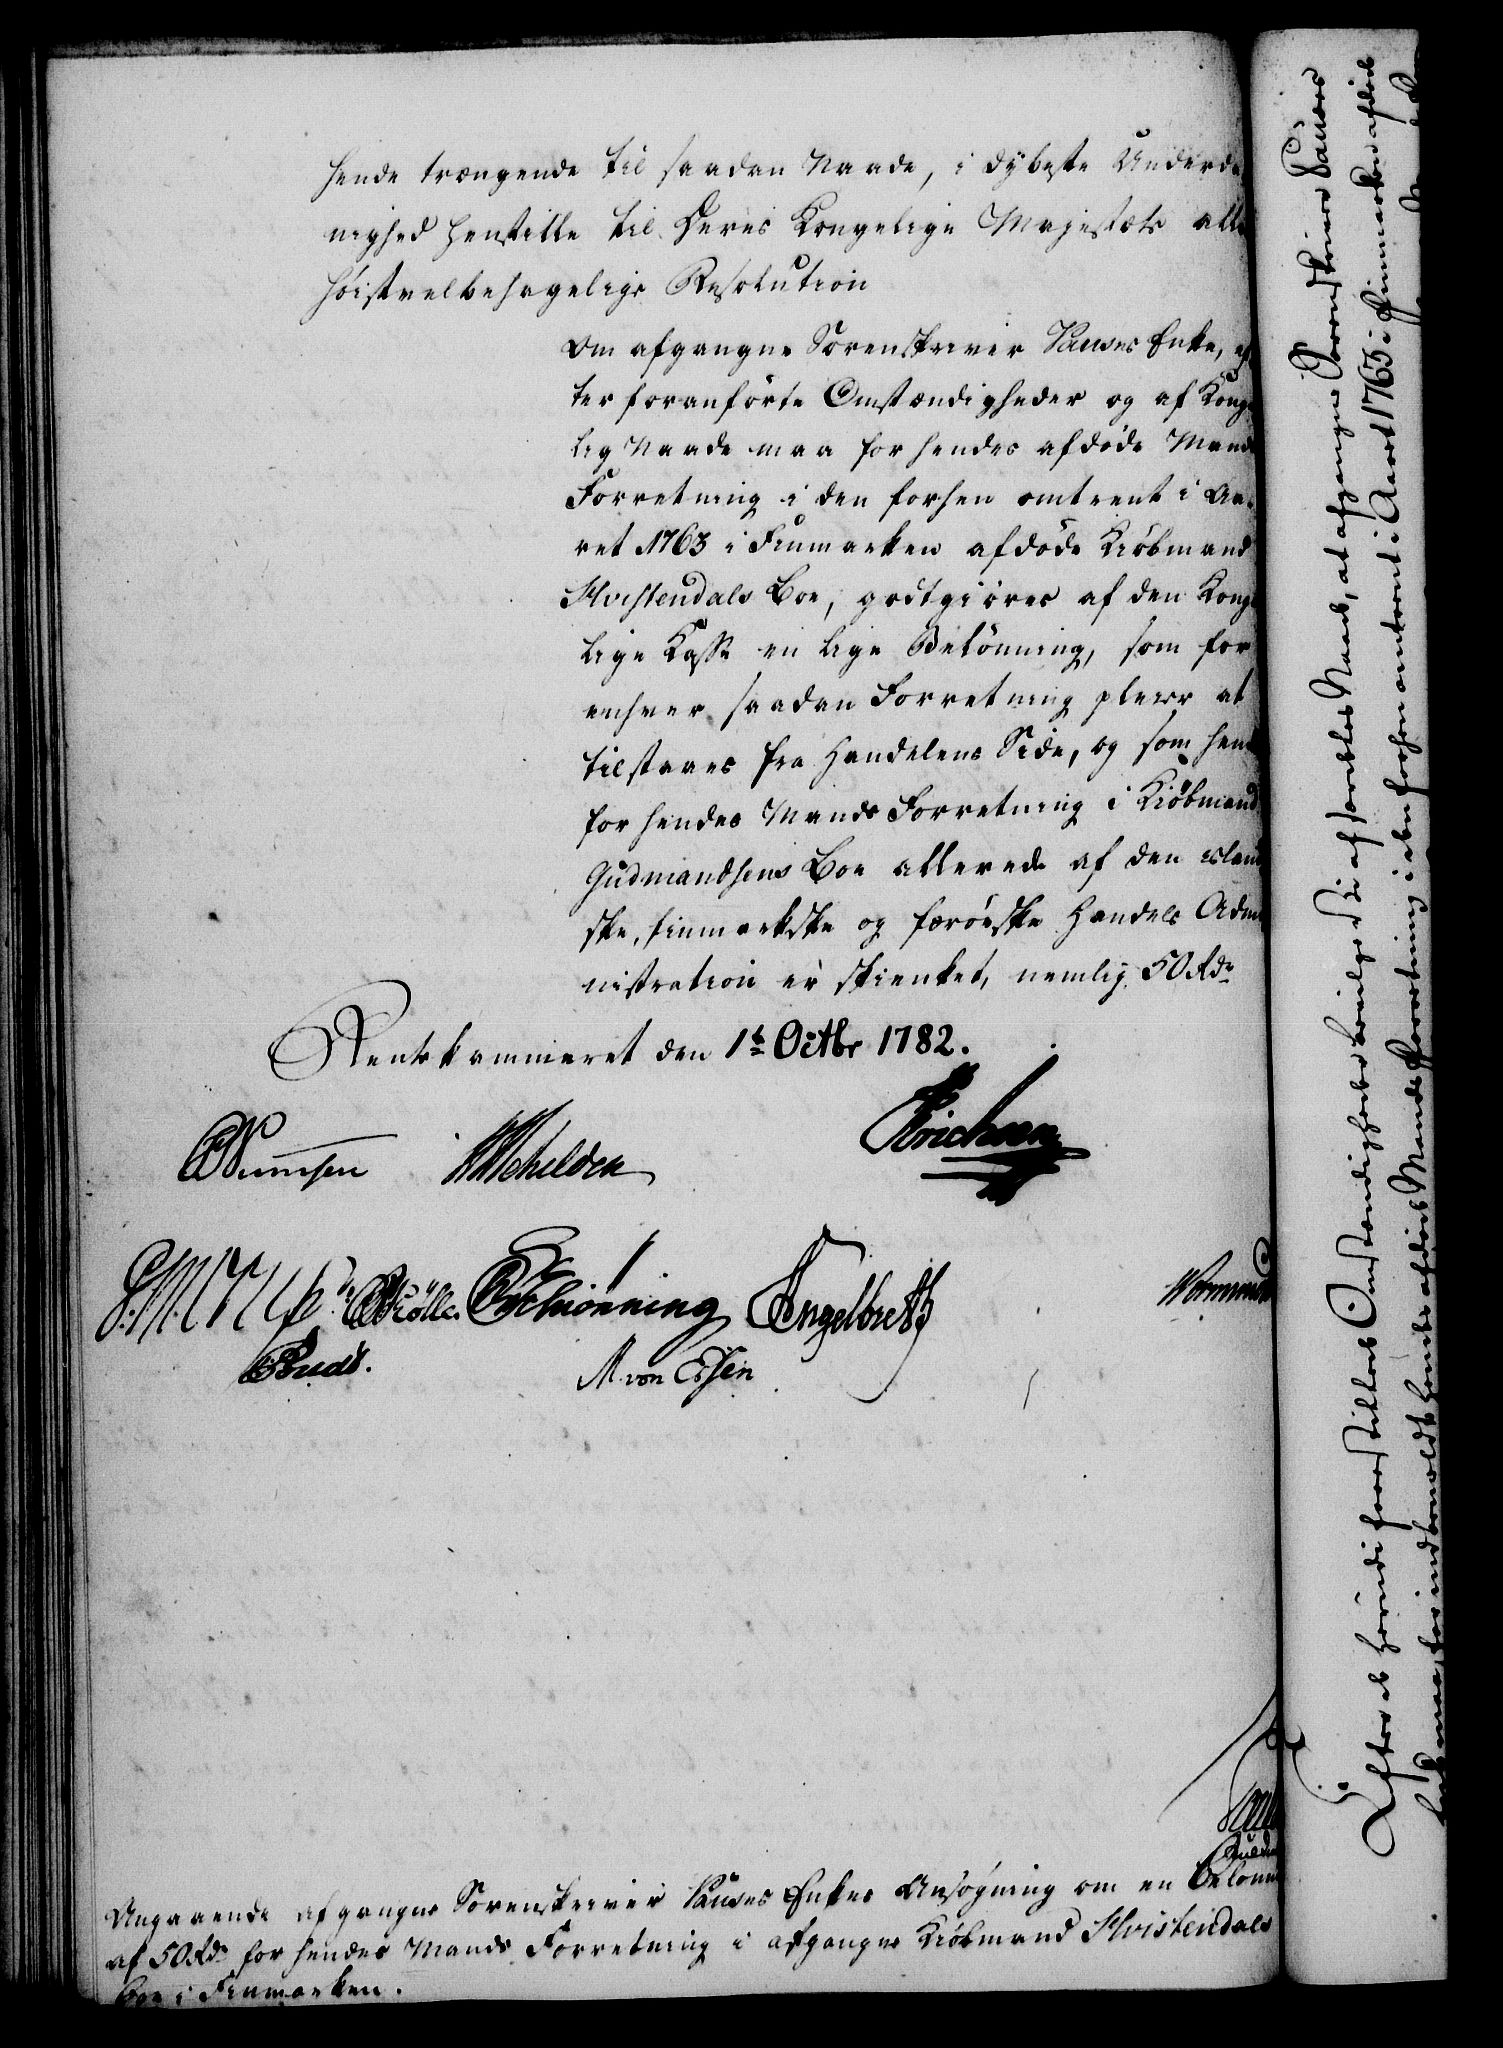 hende trængende til saadan Naade, i dybeste Underda
nighed henstille til Deres Kongelige Majestæts aller
høistvelbehagelige Resolution
Om afgangne Sorenskriver Pauses Enke, ef
ter foranførte Omstændigheder og af Konge
lig Naade maa for hendes afdøde Mands
Forretning i den forhen omtrent i Aa-
ret 1763 i Finmarken afdøde Kiøbmand
Hvistendals Boe, godtgiøres af den Konge
lige Kasse en lige Belønning, som for
enhver saadan Forretning pleier at
tilstaaes fra Handelens Side, og som hende
for hendes Mands Forretning i Kiøbmand
Gudmandsens Boe allerede af den island
ske, finmarkske og færøeske Handels Admi
nistration er skienket, nemlig 50 Rdr
Rentekammeret den 1t Octbr 1782.
Schilden
Erichsen
Müller Schiønning Engelbreth
Wormsk
M. von Essen
Angaaende afgangne Sorenskriver Pauses Enkes Ansøgning om en Belønn
af 50 Rdr for hendes Mands Forretning i afgangne Kiøbmand Hvistendals
Boe i Finmarken.
Efter de herudi forestillede Omstændigheder bevilge Vi af særdeles Naade, at afgangne Sorenskriver Pauses
Enke maa for indbemeldte hendes afdøde Mands Forretning i den forhen omtrent i Aaret 1763 i Finmarken afdøde